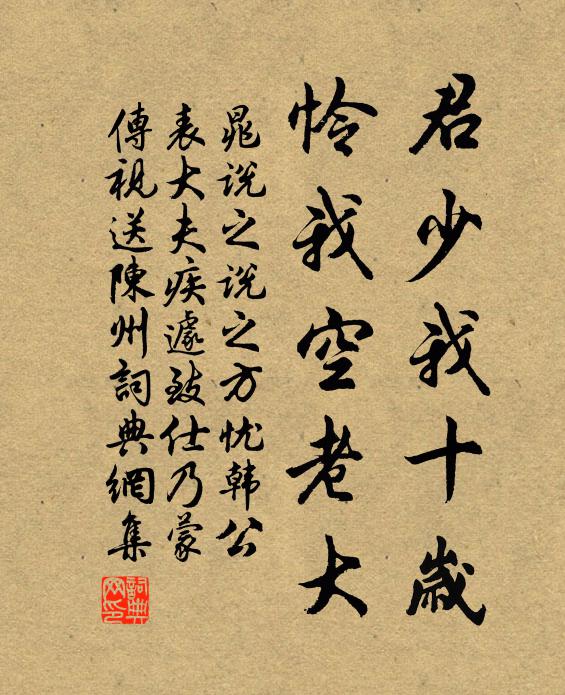 君少我十歲
憐我空老大
晁説之説之方忧韩公
表大夫疾遽致仕乃蒙
傳視送陳州詞典網集
詞典网印